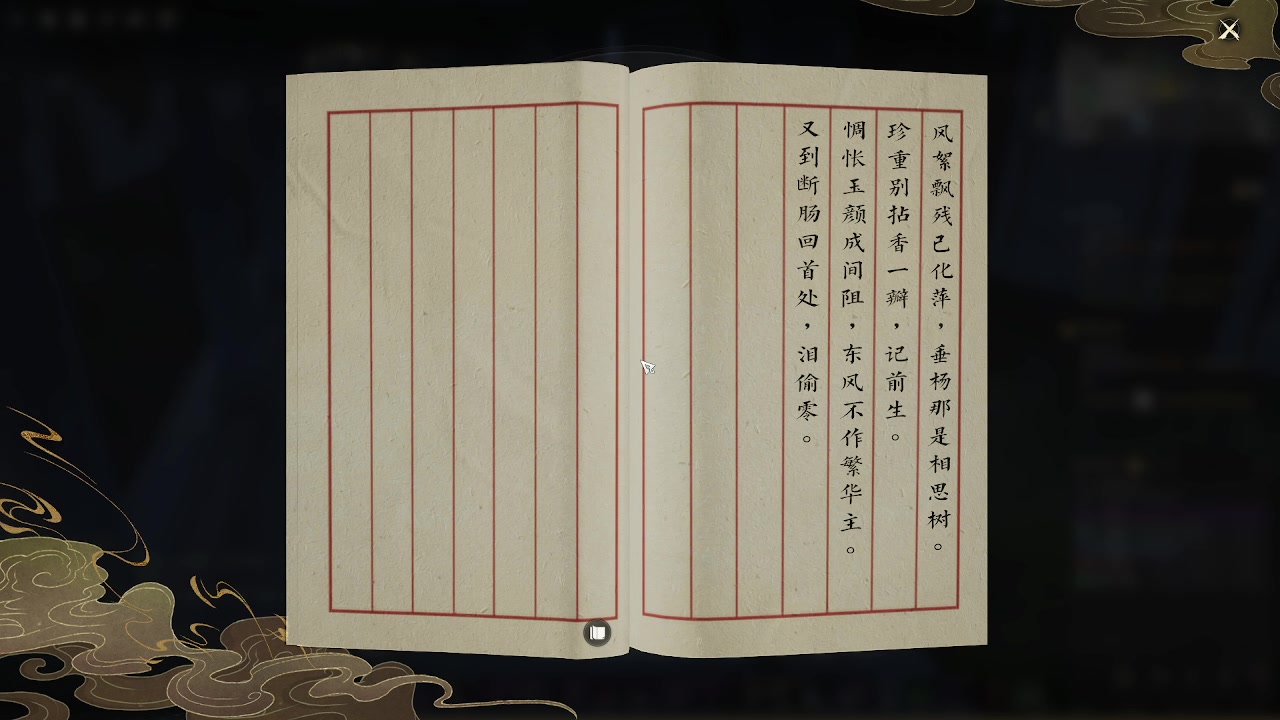 风絮飘残已化萍，垂杨那是相思树。
珍重别拈香一瓣，记前生。
惆怅玉颜成间阻，东风不作繁华主。
又到断肠回首处，泪偷零。